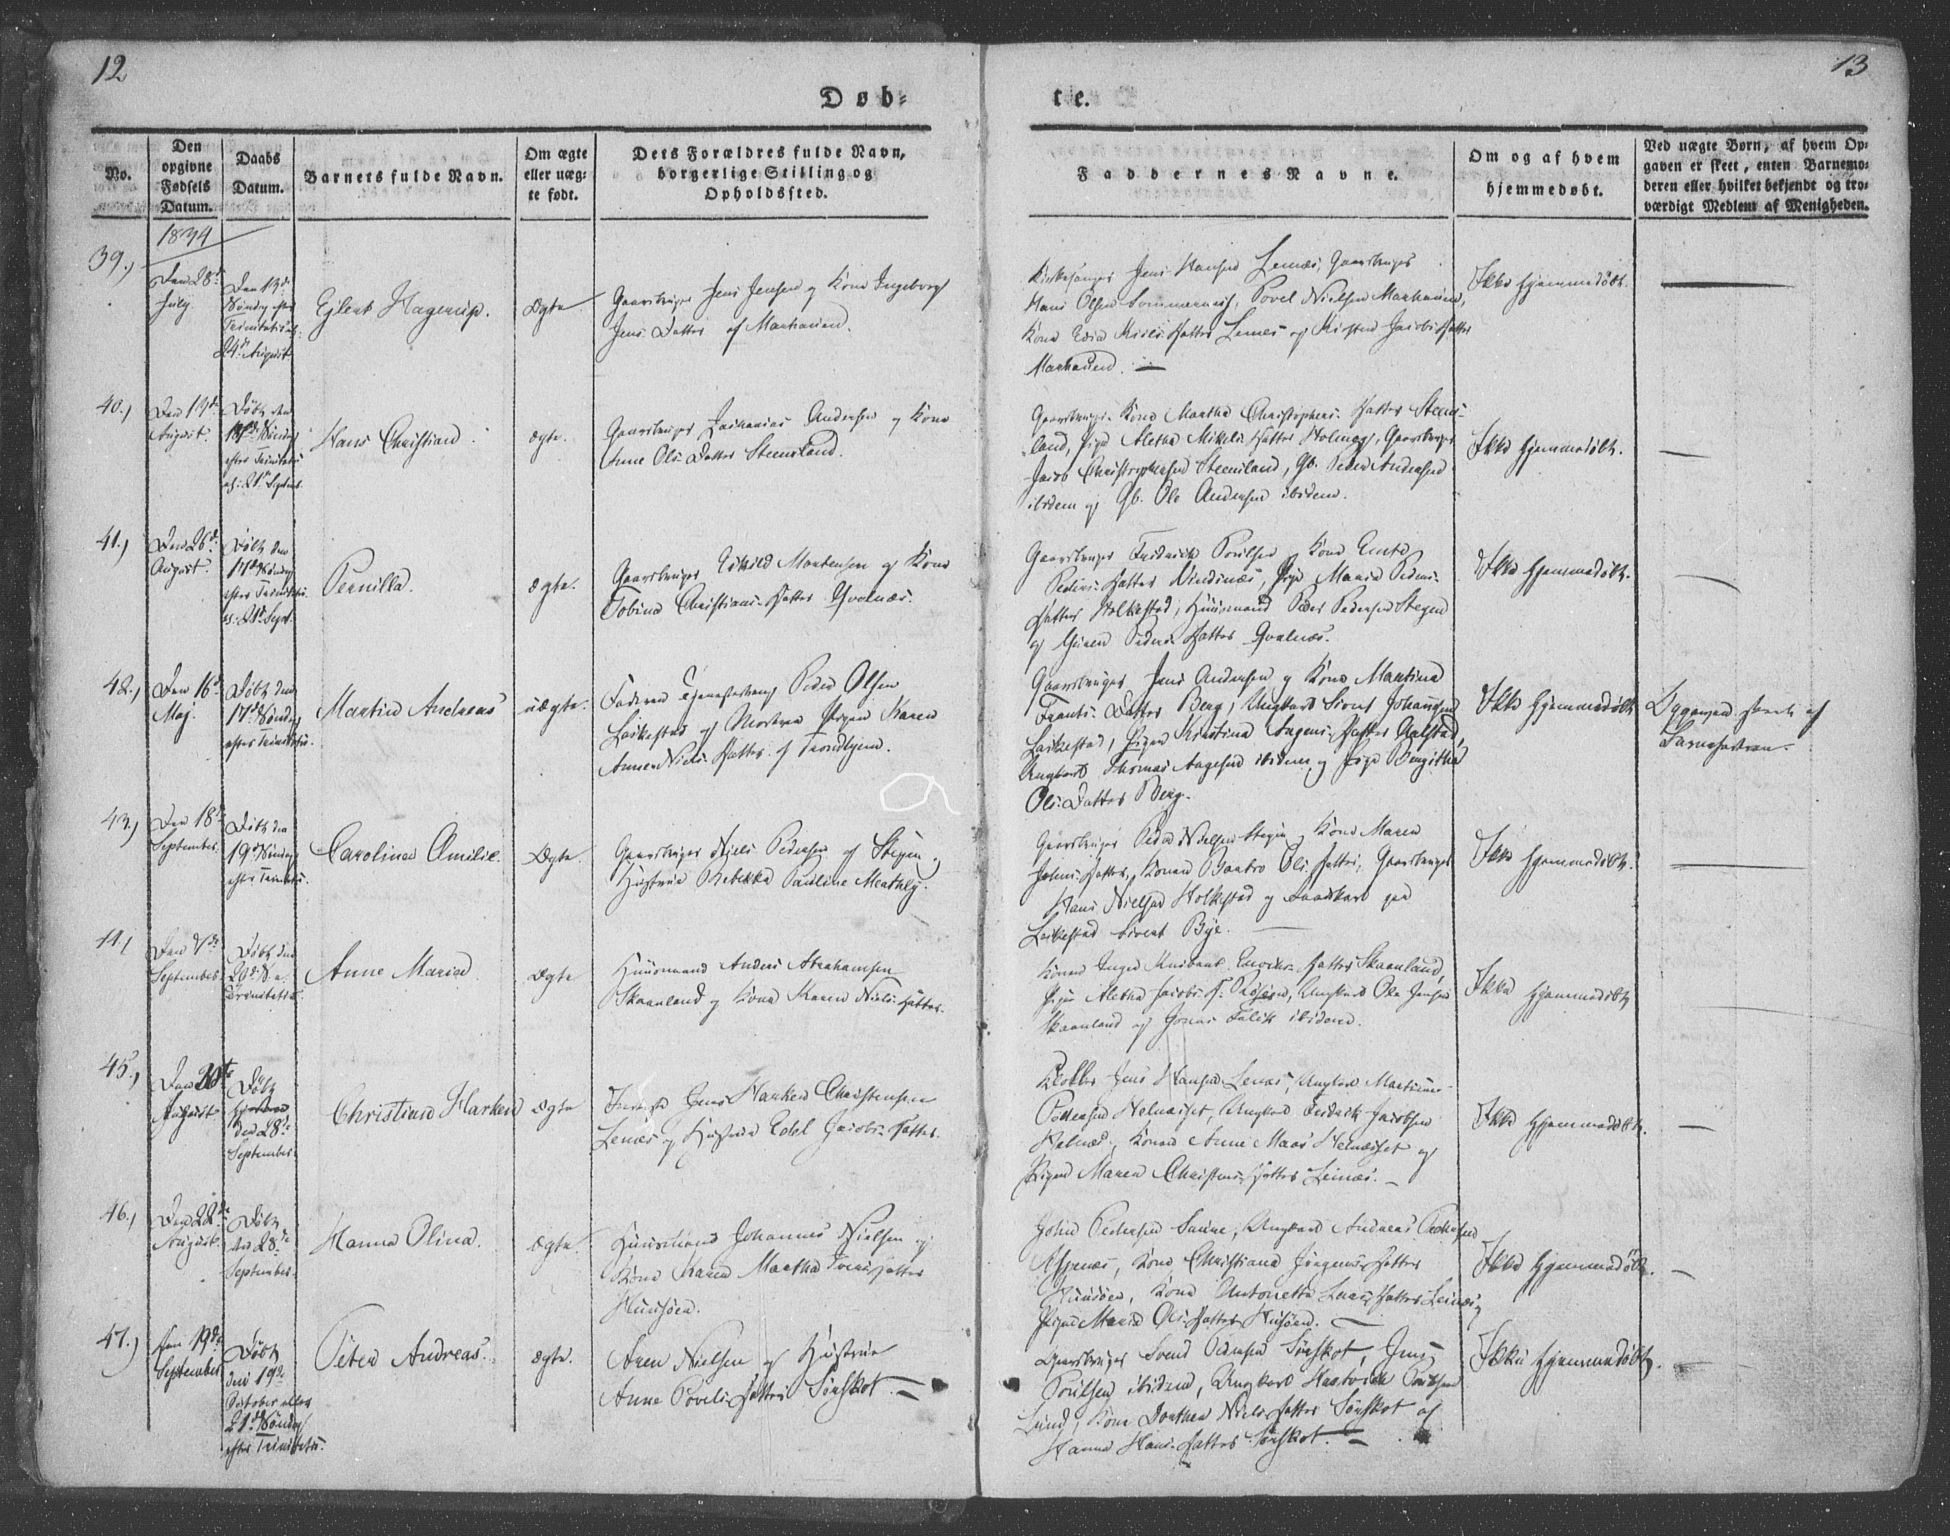 12
13
Døb-
te.
No.
Den
opgivne
Fødsels
Datum.
Daabs
Datum.
Barnets fulde Navn.
Om ægte
eller uæg-
te født.
Dets Forældres fulde Navn,
borgerlige Stilling og
Opholdssted.
Faddernes Navne.
Om og af hvem
hjemmedøbt.
Ved uægte Børn, af hvem Op-
gaven er skeet, enten Barnemo-
deren eller hvilket bekjendt og tro-
værdigt Medlem af Menigheden.
1834
39.,
Den 28de
July
Den 13de
Søndag efter
Trinitatis
24de August
Eylert Hagerup.
Ægte
Gaardbruger Jens Jensen og Kone Ingeborg
Jens Datter af Manhausen.
Kirkesanger Jens Hansen Lenæs, Gaardbruger
Hans Olsen Sommernæs, Povel Nielsen Manhausen,
Kone Niels Datter Lenæs og Kirsten Jacobs Datter
Manhausen. —
Ikke hjemmedøbt.
40.,
Den 13de
August.
Døbt den
Søndag
efter Trinitatis
21de Septbr.
Hans Christian
ægte.
Gaardbruger Zacharias Andersen og Kone
Anne Ols Datter Steensland.
Gaardbruger Kone Martha Christophers Datter Steens-
land, Pige Aletha Mikels Datter Holmag, Gaardbruger
Jacob Christophersen Steensland, Gb. Peder Andersen
ibidem og Gb. Ole Andersen ibidem.
Ikke hjemmedøbt.
41.,
Den 26de
August.
Døbt den
17de Søndag
efter Trinitatis
21de Sept.
Pernilla.
ægte.
Gaardbruger Eskild Mortensen og Kone
Tobina Christians Datter Qvalnæs.
Gaardbruger Fridrich Poulsen Kone
Peders Datter Nindinæs, Pige Maria Peders
Datter Holkestad, Huusmand Peder Pedersen Stegen
og Peders Datter Qvalnæs.
Ikke hjemmedøbt.
42.,
Den 16de
Maj.
Døbt den
17de Søndag
efter Trinitatis.
Martin Andreas
uægte.
Faderen Tjenestedreng Peder Olsen
Leikestad og Moderen Pigen Karen
Anna Niels Datter af Trondhjem.
Gaardbruger Jens Andersen og Kone Martina
Frants Datter Berg, Ungkarl Sivert Johansen
Leikestad, Pigen Kristina Aages Datter Aalstad,
Ungkarl Thomas Aagesen ibidem og Pige Bergitha
Ols Datter Berg.
Ikke hjemmedøbt
Opgaven skeet af
Barnefaderen.
43.,
Den 18de
September.
Døbt den
19de Søndag
efter Trinitatis.
Carolina Amilie.
Ægte.
Gaardbruger Niels Pedersen af Stegen og
Hustrue Rebekka Pauline Menthly.
Gaardbruger Peder Nielsen Stegen Kone Maren
Johns Datter, Konen Baabro Ols Datter, Gaardbruger
Hans Nielsen Holkestad og paa
Leikestad Sivert Bye.
Ikke hjemmedøbt.
44.,
Den 7de
September
Døbt den
20de S. e.
Trinitatis.
Anne Maria
Ægte
Huusmand Anders Abrahamsen
Skaanland og Kone Maren Niels Datter.
Konen Inger Datter Skaanland,
Pige Aletha Jacobs D. Ungkarl Ole Jensen
Skaanland og Jonas Falch ibidem.
Ikke hjemmedøbt
45.,
Den 20de
August
Døbt
den 28de
September
Christian Harken
ægte
Jens Harken Christensen
Lenæs og Hustrue Edel Jacobs Datter.
Klokker Jens Hansen Lenæs, Ungkarl
Pedersen Helnæsset, Ungkarl Fridrik Jacobsen
Konen Anne Maas Helnæsset og
Pigen Maren Christens Datter Leinæs. —
Ikke hjemmedøbt.
46.,
Den 22de
August
Døbt
den 28de
September
Hanna Olina.
ægte
Huusmand Johannes Nielsen og
Kone Karen Martha Ivers Datter
Huusøen.
John Pedersen Ungkarl Andreas Pedersen
Aspenæs, Kone Christiana Jørgens Datter
Huusøen, Kone Antonetta Datter Leinæs og
Pige Maria Ols Datter Husøen. —
Ikke hjemmedøbt.
47.,
Den 19de
September
Døbt
den 19de
October eller
21de Søndag
efter Trinitatis.
Peter Andreas.
ægte.
Aren Nielsen og Hustrue
Anne Povels Datter Sørskot. —
Gaardbruger Svend Pedersen Sørskot, Jens
Poulsen ibidem, Ungkarl Hartvick Poulsen
Lund, Kone Dorthea Niels Datter Sørskot og
Hanna Hans Datter Sørskot. —
Ikke hjemmedøbt.